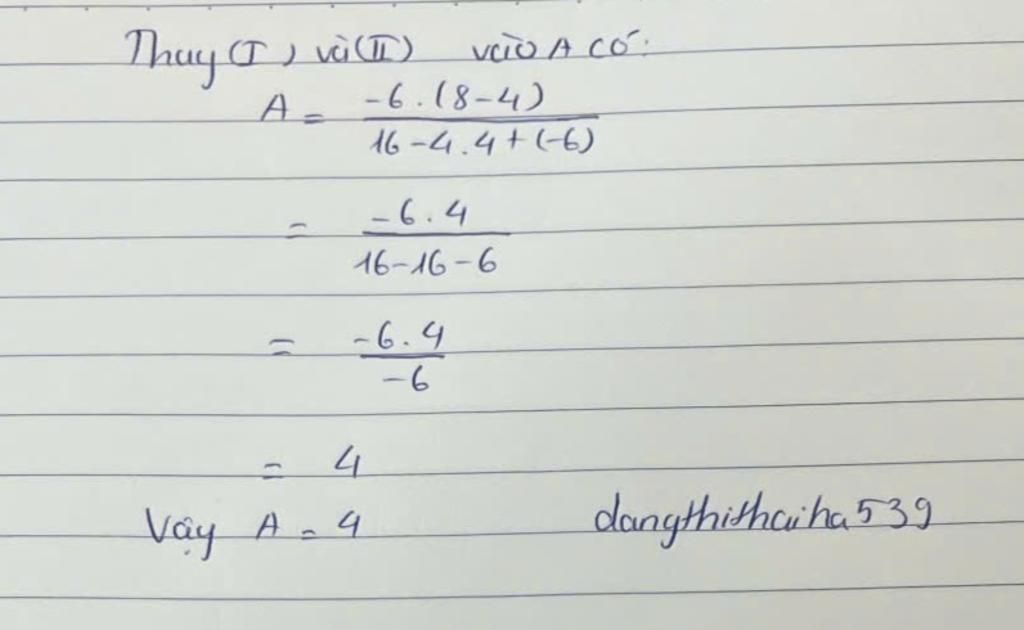 Thay (I) và (II) vào A có:
A = \frac{-6.(8-4)}{16-4.4+(-6)}
= \frac{-6.4}{16-16-6}
= \frac{-6.4}{-6}
= 4
Vậy A = 4 dangthithaiha539